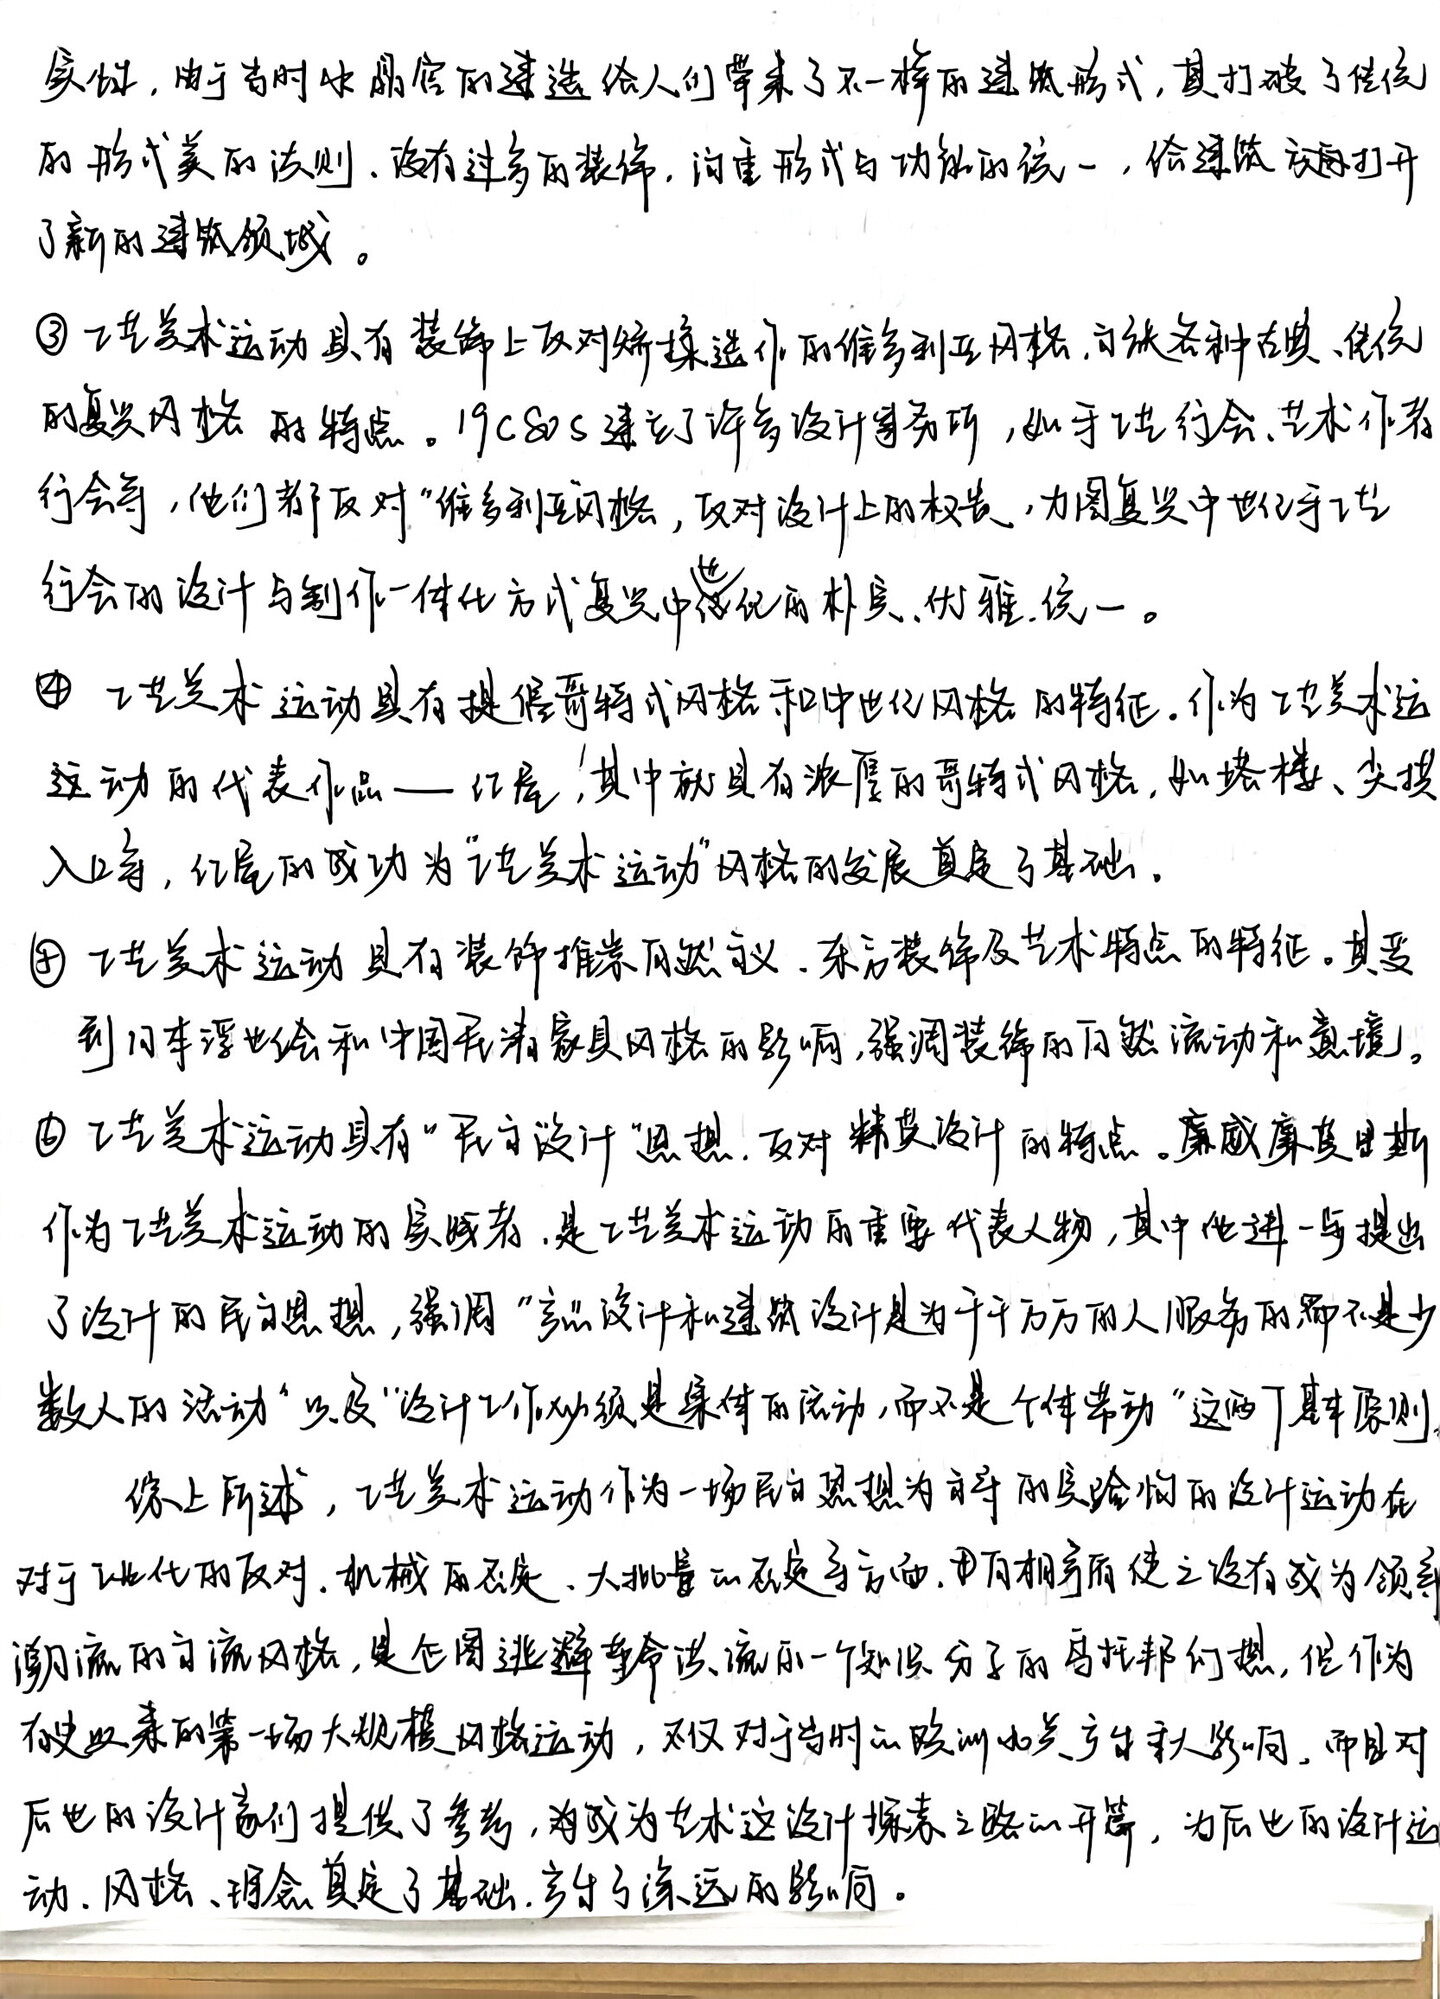 实性，由于当时水晶宫的建造给人们带来了不一样的建筑形式，其打破了传统
的形式美的法则、没有过多的装饰，注重形式与功能的统一，给建筑方面打开
了新的建筑领域。
③ 工艺美术运动具有装饰上反对矫揉造作的维多利亚风格，主张各种古典、传统
的复兴风格的特点。19c80s建立了许多设计事务所，如手工艺行会、艺术作者
行会等，他们都反对“维多利亚风格，反对设计上的权贵，力图复兴中世纪手工艺
行会的设计与制作一体化方式复兴中世纪的朴实、优雅、统一。
④ 工艺美术运动具有提倡哥特式风格和中世纪风格的特征。作为工艺美术运
运动的代表作品——红屋，其中就具有浓厚的哥特式风格，如塔楼、尖拱
入口等，红屋的成功为“工艺美术运动”风格的发展奠定了基础。
⑤ 工艺美术运动具有装饰推崇自然主义、东方装饰及艺术特点的特征。其受
到日本浮世绘和中国民清家具风格的影响，强调装饰的自然流动和意境。
⑥ 工艺美术运动具有“民主设计”思想，反对精英设计的特点。廉威廉莫里斯
作为工艺美术运动的实践者，是工艺美术运动的重要代表人物，其中他进一步提出
了设计的民主思想，强调“产品设计和建筑设计是为千千万万的人服务的，而不是少
数人的活动”以及“设计工作必须是集体的活动，而不是个体劳动”这两个基本原则。
综上所述，工艺美术运动作为一场民主思想为主导的实验性的设计运动在
对于工业化的反对、机械的否定、大批量的否定等方面，使之没有成为领导
潮流的主流风格，是企图逃避革命洪流的一个知识分子的乌托邦幻想，但作为
有史以来的第一场大规模风格运动，不仅对于当时的欧洲各产生重大影响，而且对
后世的设计家们提供了参考，成为艺术设计探索之路的开篇，为后世的设计运
动、风格、理念奠定了基础，产生了深远的影响。